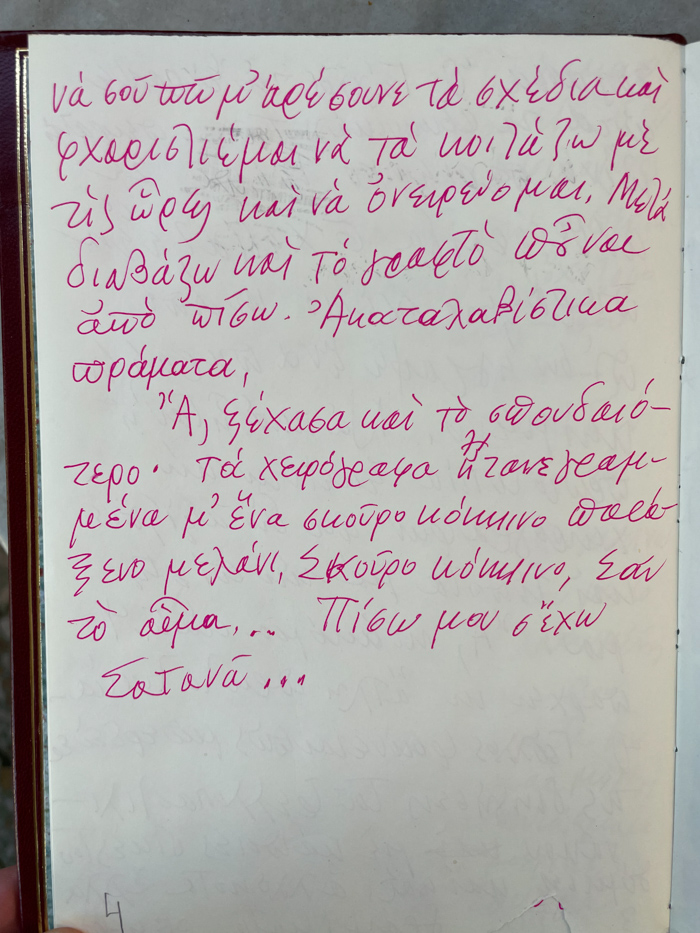 νὰ σοῦ πῶ μ' ἀρέσουνε τὰ σχέδια καὶ
φχαριστιέμαι νὰ τὰ κοιτάζω μὲ
τὶς ὧρες καὶ νὰ ὀνειρεύομαι. Μετὰ
διαβάζω καὶ τὸ γραφτὸ ποὖναι
ἀπὸ πίσω. Ἀκαταλαβίστικα
πράματα,
Ἄ, ξέχασα καὶ τὸ σπουδαιό-
τερο· τὰ χειρόγραφα ἤτανε γραμ-
μένα μ' ἕνα σκοῦρο κόκκινο παρά-
ξενο μελάνι, Σκοῦρο κόκκινο, σαν
τὸ αἷμα,... Πίσω μου σ' ἔχω
Σατανᾶ...
4